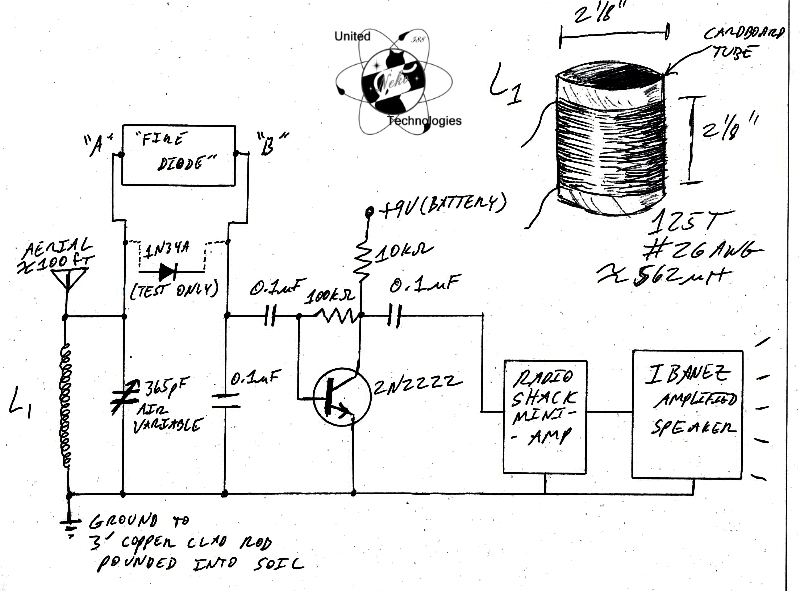 United
Technologies
2 1/8"
CARDBOARD
TUBE
L1
2 1/8"
125T
#26 AWG
≈562µH
"A"
"FIRE
DIODE"
"B"
+9V (BATTERY)
AERIAL
≈100ft
1N34A
(TEST ONLY)
10kΩ
0.1µF
100kΩ
0.1µF
L1
365pF
AIR
VARIABLE
0.1µF
2N2222
RADIO
SHACK
MINI-
-AMP
IBANEZ
AMPLIFIED
SPEAKER
GROUND TO
3' COPPER CLAD ROD
POUNDED INTO SOIL